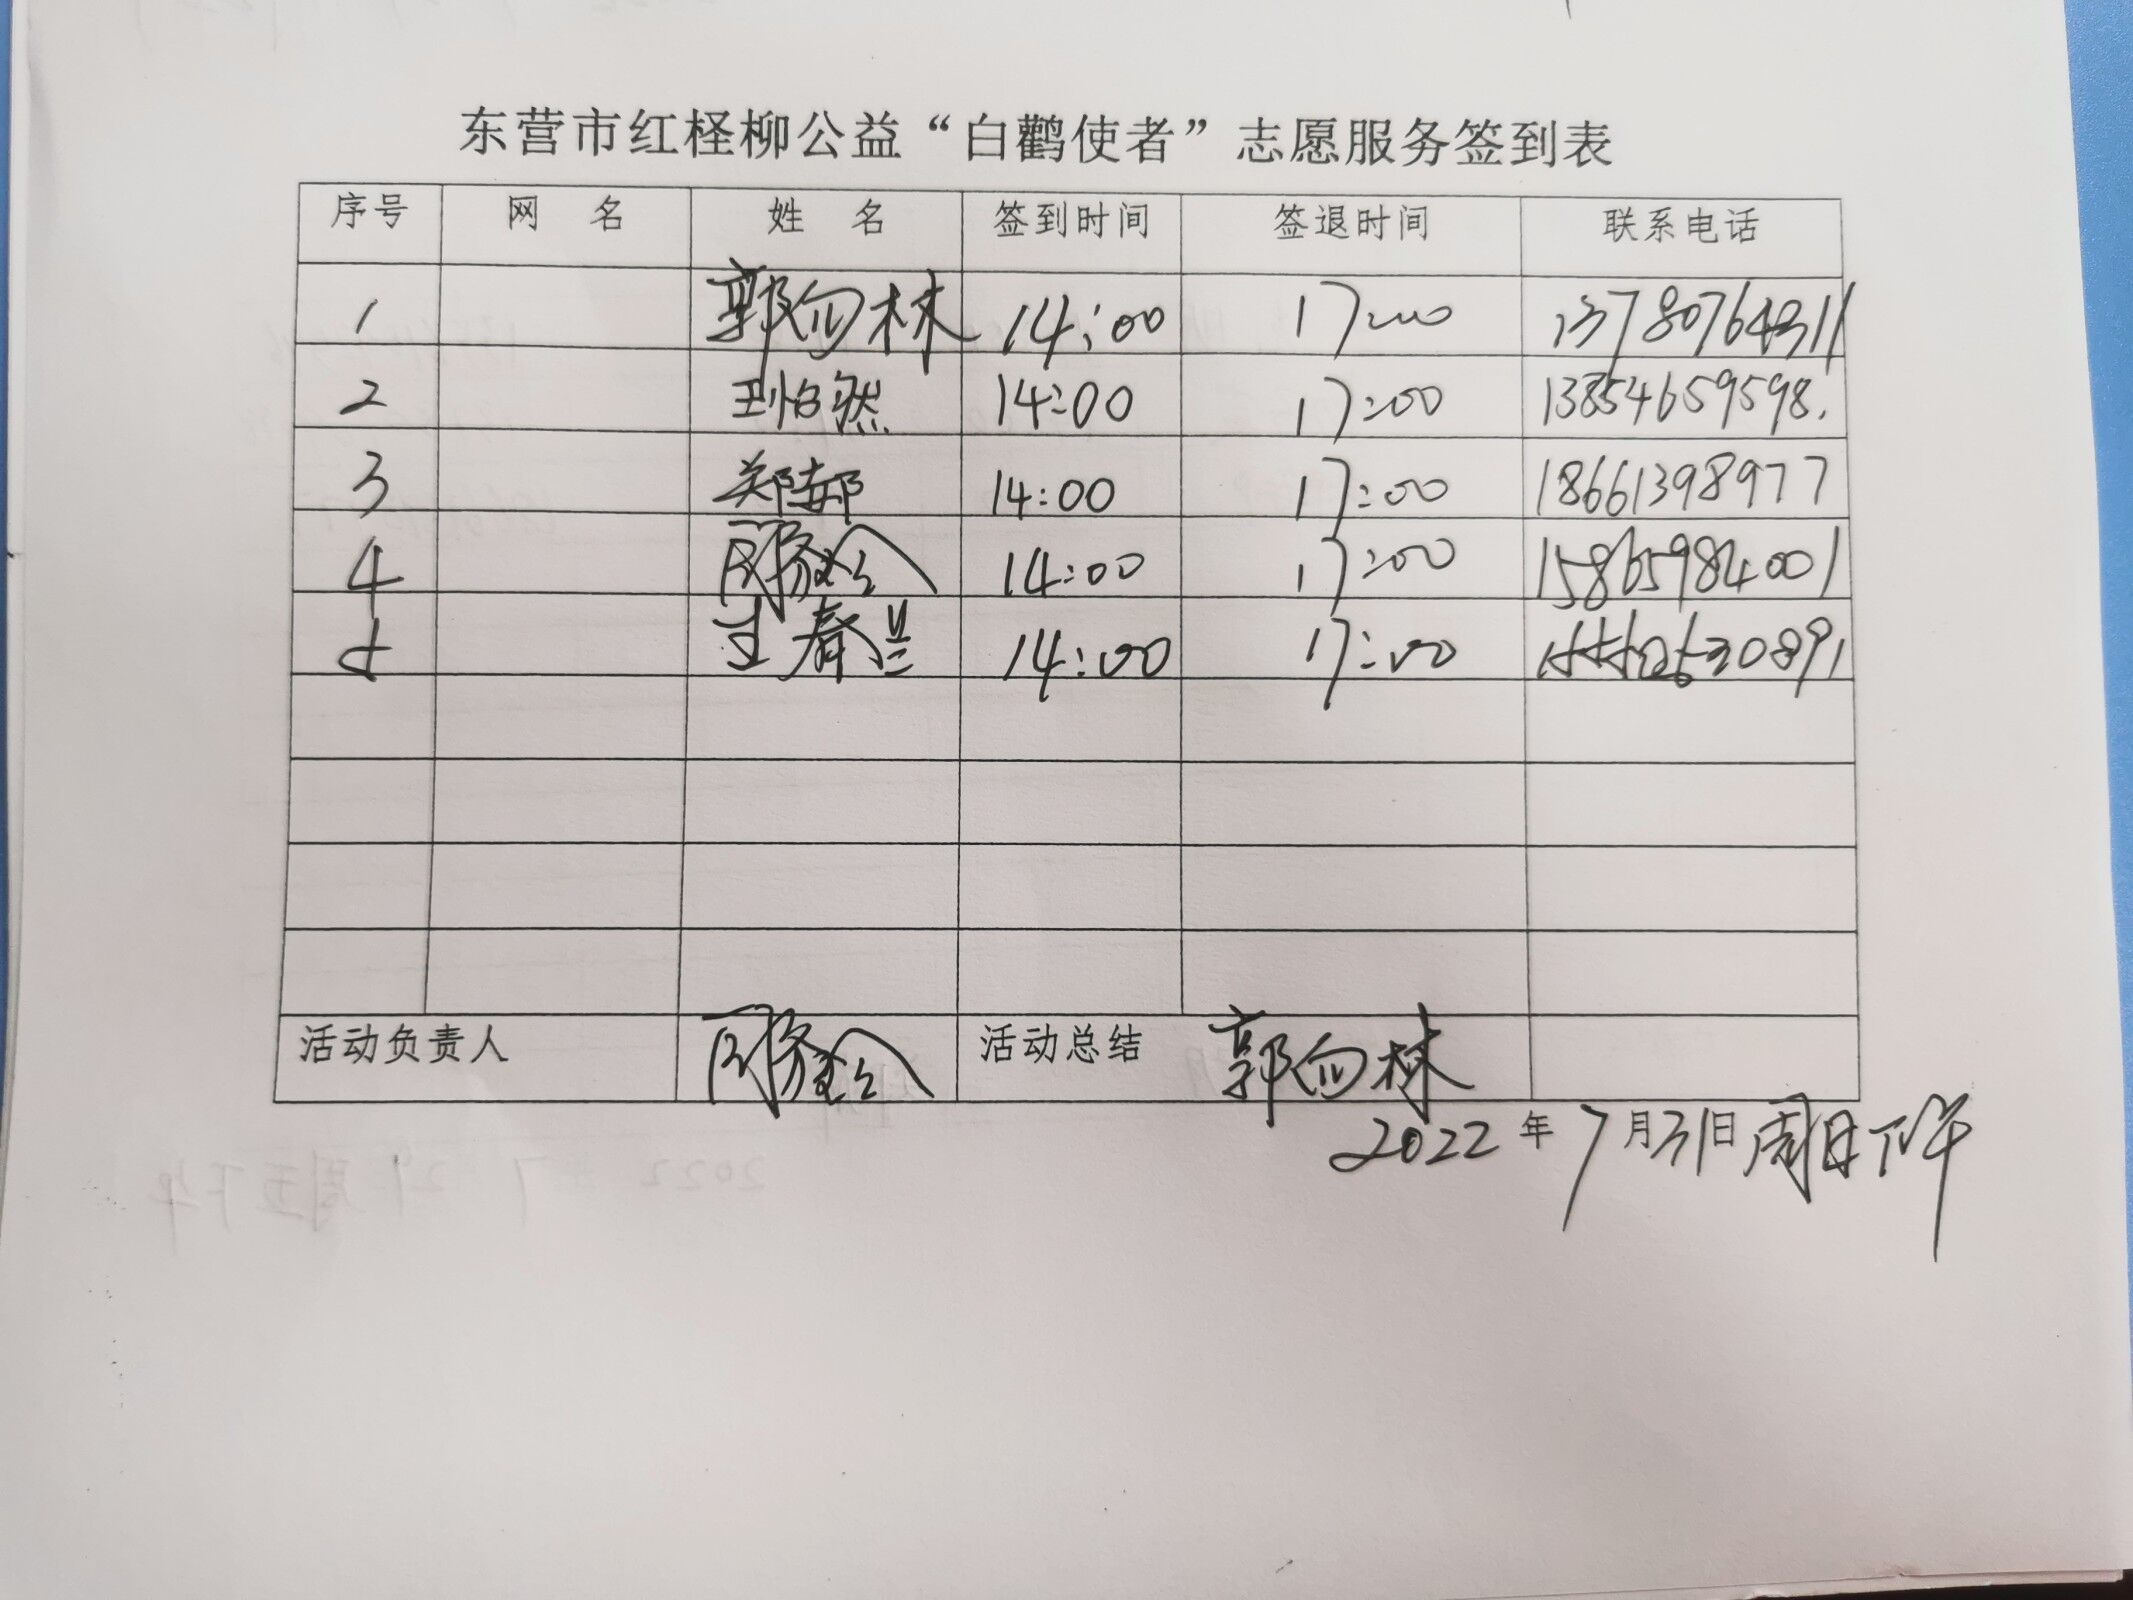 东营市红柽柳公益“白鹳使者”志愿服务签到表
序号 网 名 姓 名 签到时间 签退时间 联系电话
1 郭向林 14:00 17:00 13780764311
2 王怡然 14:00 17:00 13854659598.
3 郑 14:00 17:00 18661398977
4 14:00 17:00 15865984001
5 王春兰 14:00 17:00
活动负责人 活动总结 郭向林
2022年7月31日周日下午